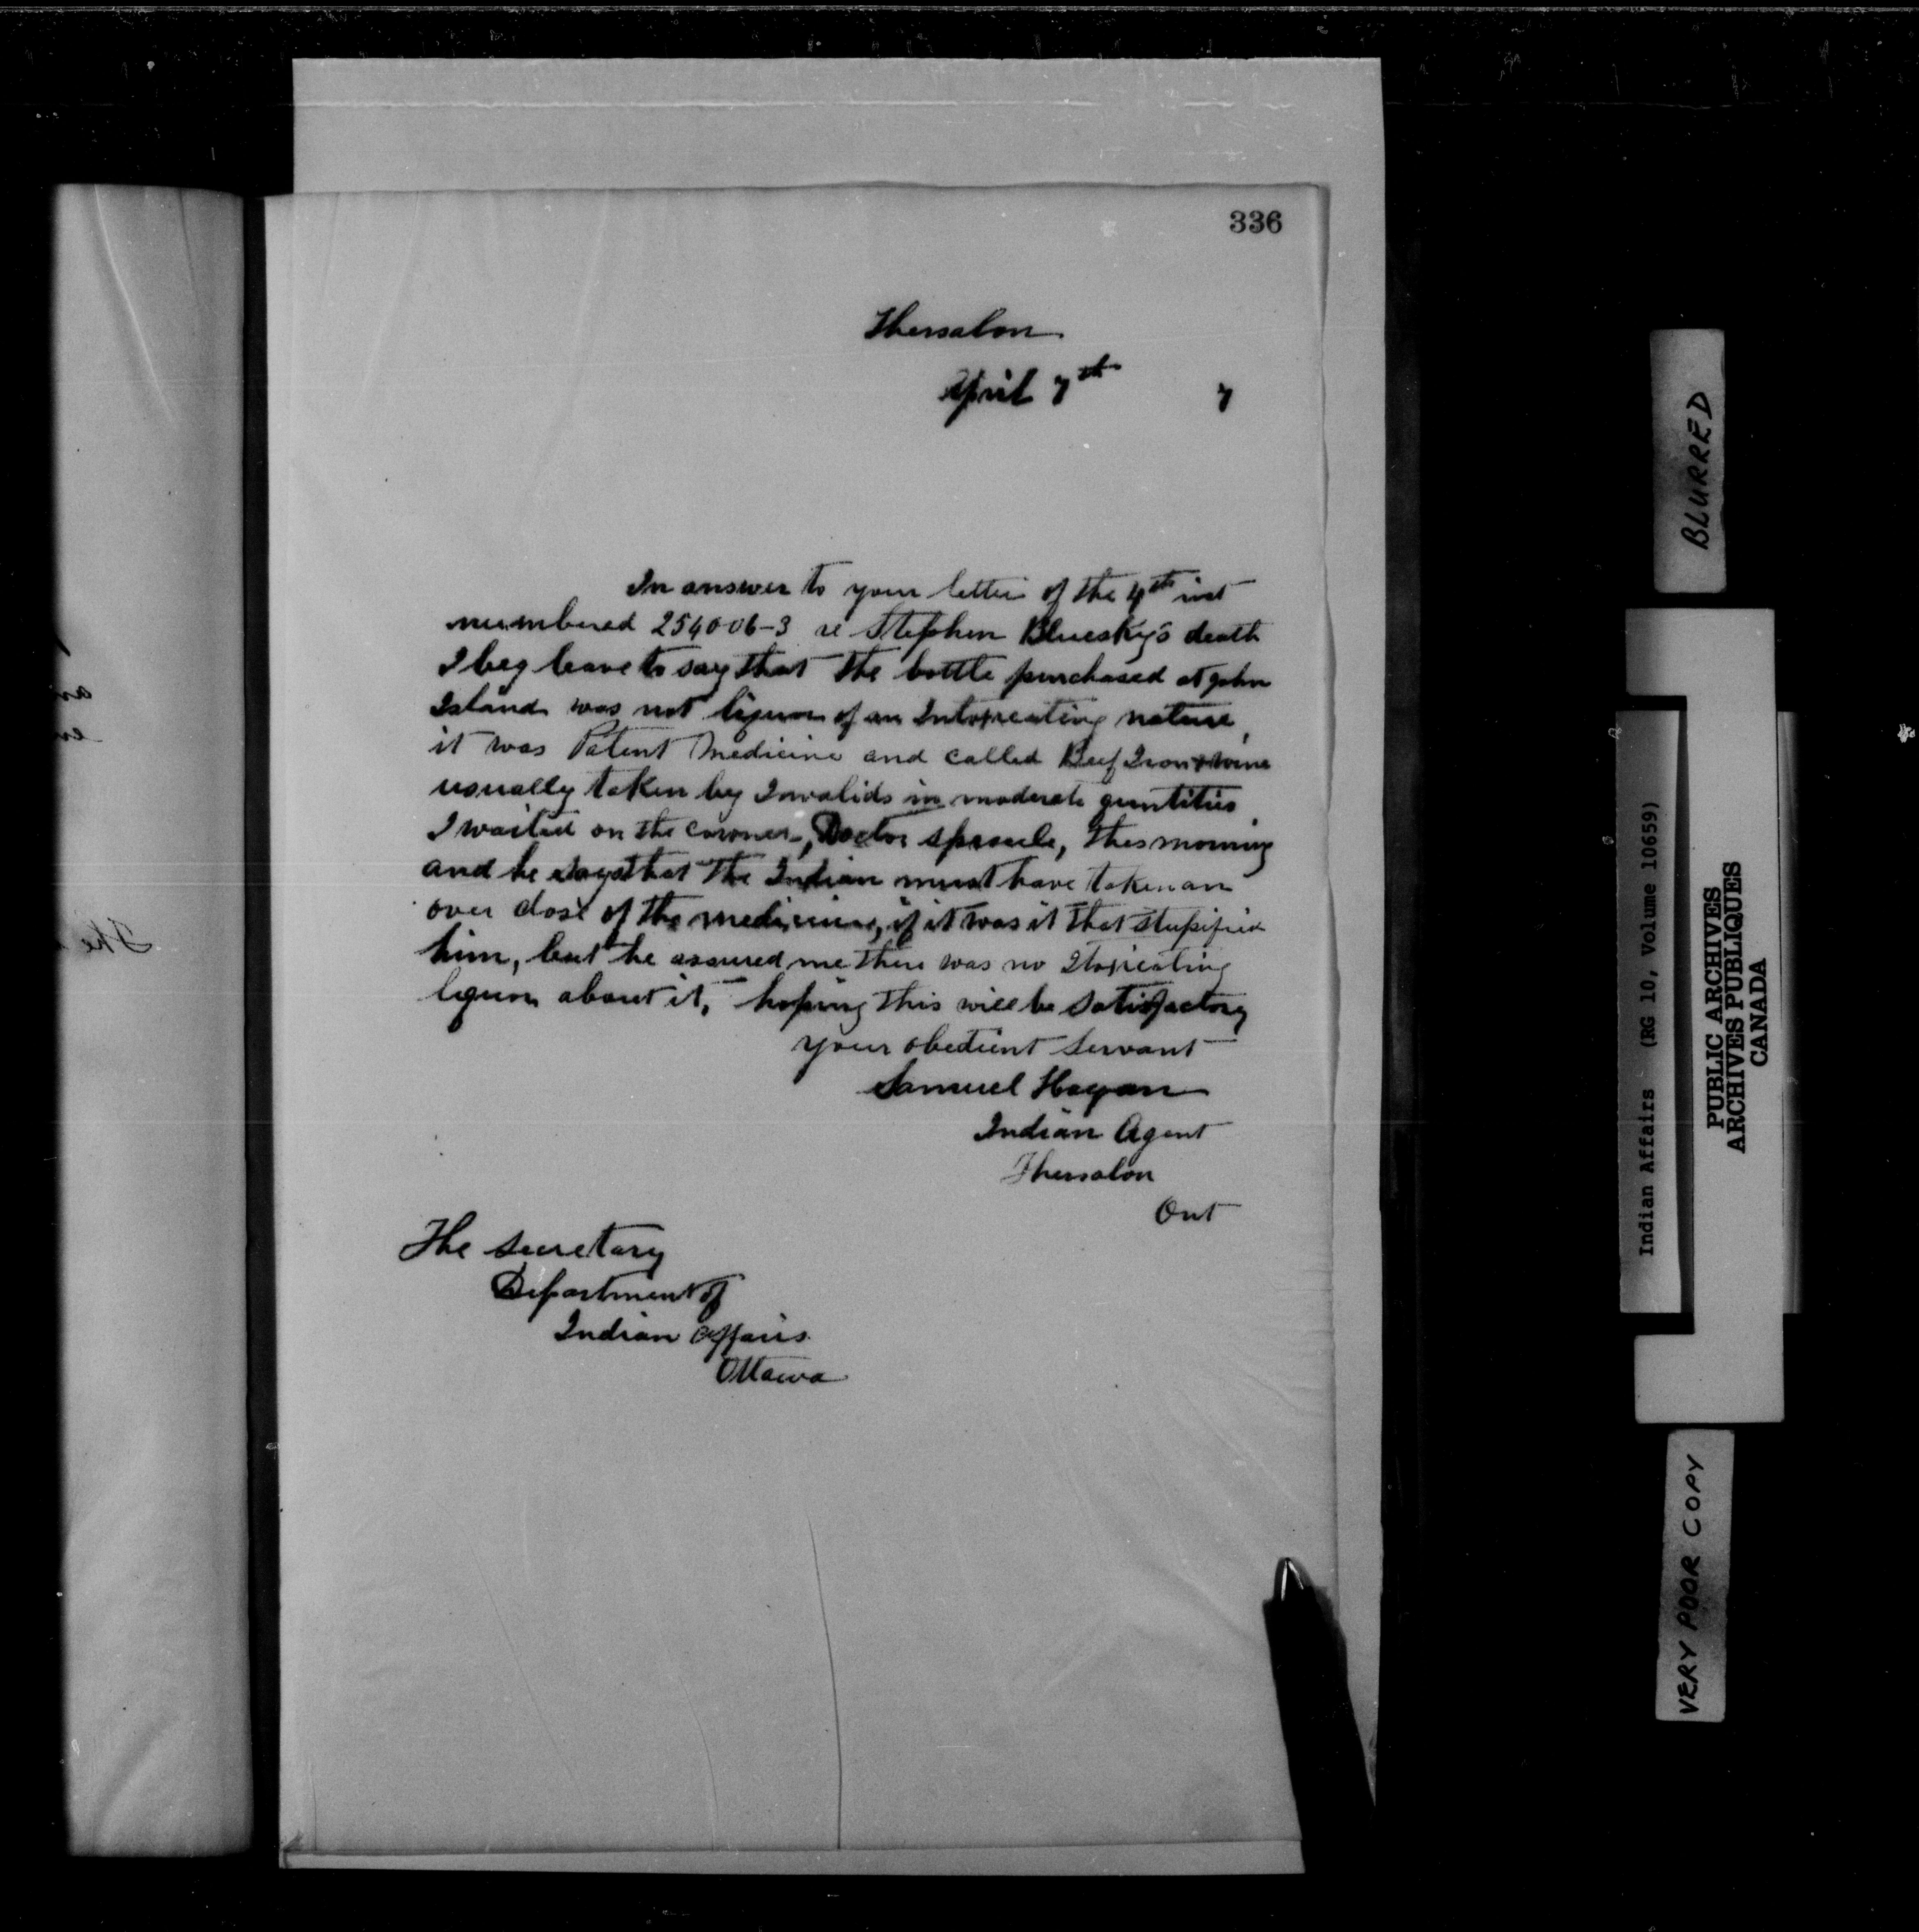 336
Thessalon
April 7th 7
In answer to your letter of the 4th inst
numbered 254006-3 re Stephen Bluesky's death
I beg leave to say that the bottle purchased at John
Island was not liquor of an Intoxicating nature,
it was Patent Medicine and called Beef Iron & wine
usually taken by Invalids in moderate quntities
I waited on the coroner, Doctor Sproule, this morning
and he says that the Indian must have taken an
over dose of the medicine, if it was it that stupified
him, but he assured me there was no Itoxicating
liquor about it, hoping this will be satisfactory
your obedient servant
Samuel Hagan
Indian Agent
Thessalon
Ont
The Secretary
Department of
Indian Affairs
Ottawa
BLURRED
Indian Affairs (RG 10, Volume 10659)
PUBLIC ARCHIVES
ARCHIVES PUBLIQUES
CANADA
VERY POOR COPY